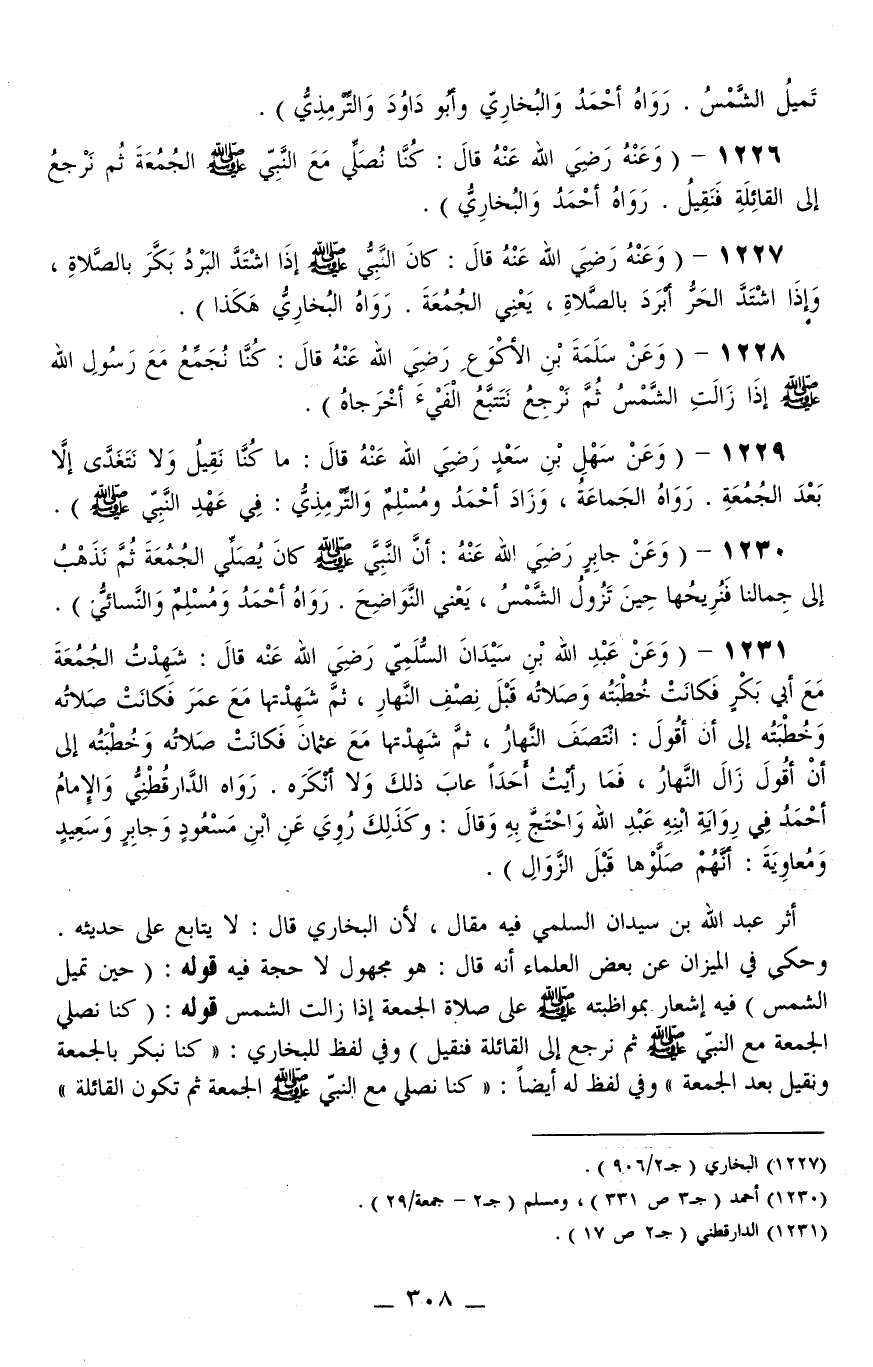 تَميلُ الشَّمْسُ . رَوَاهُ أحْمَدُ وَالبُخاريّ وأبُو دَاوُدَ وَالتِّرْمِذِيُّ ) .
١٢٢٦ – ( وَعَنْهُ رَضِيَ الله عَنْهُ قالَ : كُنَّا نُصَلِّي مَعَ النَّبِيّ ﷺ الجُمُعَةَ ثُم نَرْجعُ
إلى القائِلَةِ فَنَقِيلُ . رَوَاهُ أحْمَدُ وَالبُخاريُّ ) .
١٢٢٧ – ( وَعَنْهُ رَضِيَ الله عَنْهُ قالَ : كانَ النَّبيُّ ﷺ إذَا اشْتَدَّ البَرْدُ بَكَّرَ بالصَّلاةِ ،
وَإذَا اشْتَدَّ الحَرُّ أبْرَدَ بالصَّلاةِ ، يَعْنِي الجُمُعَةَ . رَوَاهُ البُخاريُّ هَكَذا ) .
١٢٢٨ – ( وَعَنْ سَلَمَةَ بْنِ الأكْوَعِ رَضِيَ الله عَنْهُ قالَ : كُنَّا نُجَمِّعُ مَعَ رَسُولِ الله
ﷺ إذَا زَالَتِ الشَّمْسُ ثُمَّ نَرْجِعُ نَتَتبَّعُ الْفَيْءَ أخْرَجاهُ ) .
١٢٢٩ – ( وَعَنْ سَهْلِ بْنِ سَعْدٍ رَضِيَ الله عَنْهُ قالَ : ما كُنَّا نَقِيلُ وَلا نَتَغَدَّى إلَّا
بَعْدَ الجُمُعَةِ . رَوَاهُ الجَماعَةُ ، وَزَادَ أحْمَدُ ومُسْلِمٌ وَالتِّرْمِذيُّ : فِي عَهْدِ النَّبِيّ ﷺ ) .
١٢٣٠ – ( وَعَنْ جابِرٍ رَضِيَ الله عَنْهُ : أنَّ النَّبِيَّ ﷺ كانَ يُصَلِّي الجُمُعَةَ ثُمَّ نَذْهَبُ
إلى جِمالنا فَنُرِيحُها حِينَ تَزُولُ الشَّمْسُ ، يَعْني النَّوَاضِحَ . رَوَاهُ أحْمَدُ وَمُسْلِمٌ وَالنَّسائيُّ ) .
١٢٣١ – ( وَعَنْ عَبْدِ الله بْنِ سَيْدَانَ السُّلَمِيّ رَضِيَ الله عَنْه قالَ : شَهِدْتُ الجُمُعَةَ
مَعَ أبي بَكْرٍ فَكانَتْ خُطْبَتُه وَصَلاتُه قَبْلَ نِصْفِ النَّهارِ ، ثمَّ شَهِدْتها مَعَ عمَرَ فَكانَتْ صَلاتُه
وَخُطْبَتُه إلى أن أقُولَ : انْتَصَفَ النَّهارُ ، ثمَّ شَهِدْتها مَعَ عثمانَ فَكانَتْ صَلاتُه وَخُطبَتُه إلى
أنْ أقُولَ زَالَ النَّهارُ ، فَمَا رأيْتُ أَحَدَاً عابَ ذلكَ وَلا أنْكَرَه . رَوَاه الدَّارقُطْنِيُّ وَالإمامُ
أحْمَدُ فِي رِوَايَةِ ابْنِهِ عَبْدِ الله وَاحْتَجَّ بِهِ وَقالَ : وكَذَلِكَ رُوِيَ عَنِ ابْنِ مَسْعُودٍ وَجابِرٍ وَسَعِيدٍ
وَمُعاوِيَةَ : أنَّهُمْ صَلَّوْها قَبْلَ الزَّوَالِ ) .
أثر عبد الله بن سيدان السلمي فيه مقال ، لأن البخاري قال : لا يتابع على حديثه .
وحكي في الميزان عن بعض العلماء أنه قال : هو مجهول لا حجة فيه قوله : ( حين تميل
الشمس ) فيه إشعار بمواظبته ﷺ على صلاة الجمعة إذا زالت الشمس قوله : ( كنا نصلي
الجمعة مع النبيّ ﷺ ثم نرجع إلى القائلة فنقيل ) وفي لفظ للبخاري : « كنا نبكر بالجمعة
ونقيل بعد الجمعة » وفي لفظ له أيضاً : « كنا نصلي مع النبيّ ﷺ الجمعة ثم تكون القائلة »
(١٢٢٧) البخاري ( جـ٢/٩٠٦ ) .
(١٢٣٠) أحمد ( جـ٣ ص ٣٣١ ) ، ومسلم ( جـ٢ – جمعة/٢٩ ) .
(١٢٣١) الدارقطني ( جـ٢ ص ١٧ ) .
ــ ٣٠٨ ــ